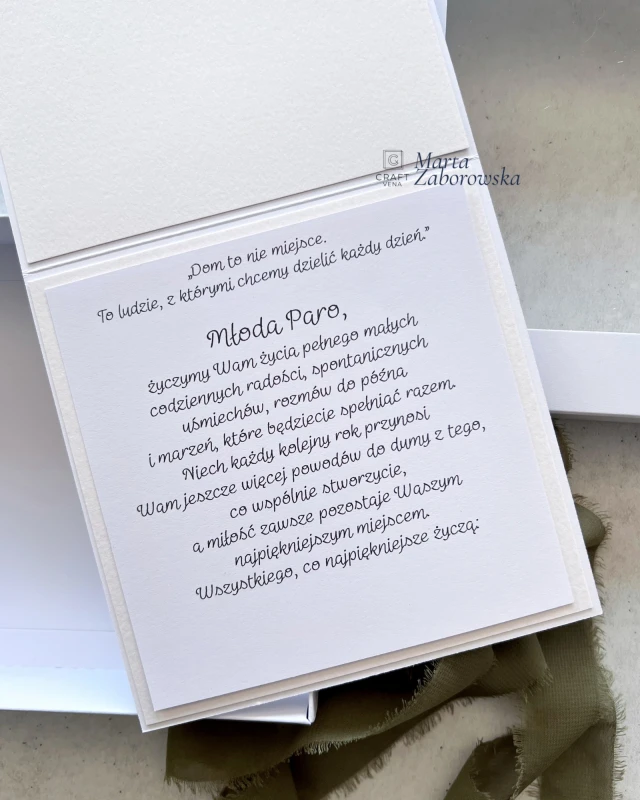 CRAFT
VENA
Marta
Zaborowska
„Dom to nie miejsce.
To ludzie, z którymi chcemy dzielić każdy dzień.”
Młoda Paro,
życzymy Wam życia pełnego małych
codziennych radości, spontanicznych
uśmiechów, rozmów do późna
i marzeń, które będziecie spełniać razem.
Niech każdy kolejny rok przynosi
Wam jeszcze więcej powodów do dumy z tego,
co wspólnie stworzycie,
a miłość zawsze pozostaje Waszym
najpiękniejszym miejscem.
Wszystkiego, co najpiękniejsze życzą: